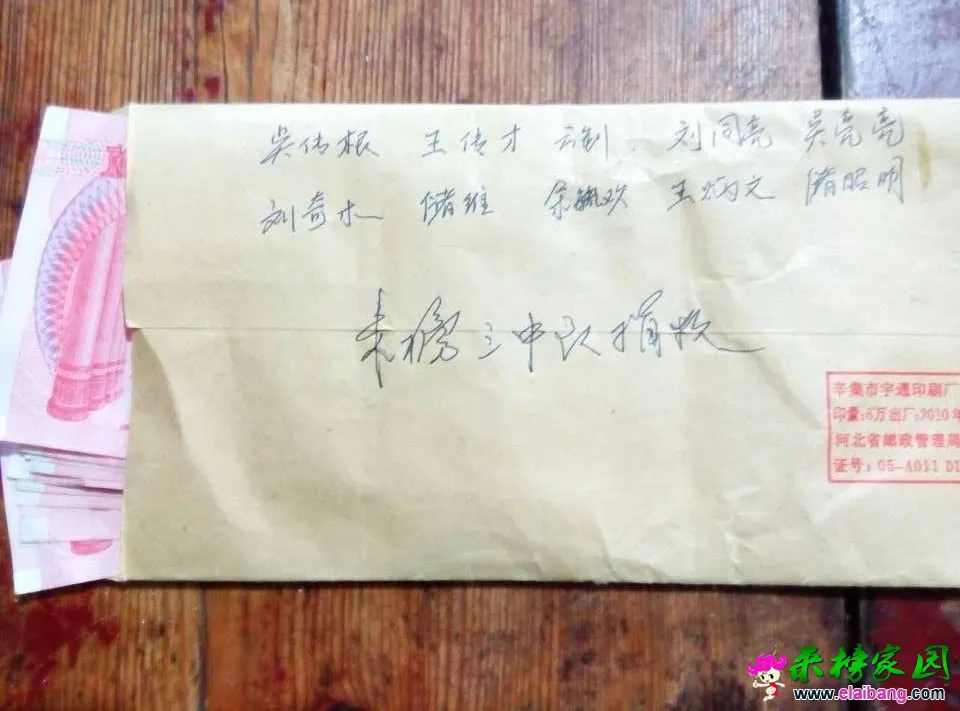 吴传根 王传才 刘同亮 吴亮亮
刘奇木 储维 余毓欢 王炳文 储昭明
来榜三中队捐款
辛集市宇通印刷厂
印量:6万出厂:2010年
河北省邮政管理局
证号:05-A011 D
来榜家园
www.elaibang.com